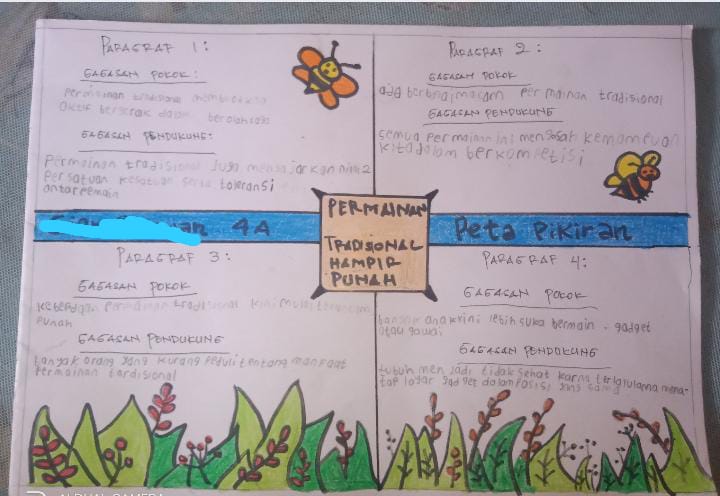 PARAGRAF 1:
GAGASAN POKOK:
Permainan tradisional membuat kita
aktif bergerak dalam berolahraga
GAGASAN PENDUKUNG:
Permainan tradisional Juga mengajarkan nilai2
Persatuan kesatuan serta toleransi
antar pemain
PARAGRAF 2:
GAGASAN POKOK
ada bermacam Permainan tradisional
GAGASAN PENDUKUNG
semua Permainan ini mengasah kemampuan
kita dalam berkompetisi
4A
PERMAINAN
TRADISIONAL
HAMPIR
PUNAH
Peta Pikiran
PARAGRAF 3:
GAGASAN POKOK
Permainan tradisional kini mulai terancam
Punah
GAGASAN PENDUKUNG
banyak orang yang kurang Peduli tentang manfaat
Permainan tardisional
PARAGRAF 4:
GAGASAN POKOK
anak kini lebih suka bermain gadget
atau gawai
GAGASAN PENDUKUNG
tubuh men jadi tidak sehat karna terlalu lama mena-
tap layar gad get dalam Posisi yang sama